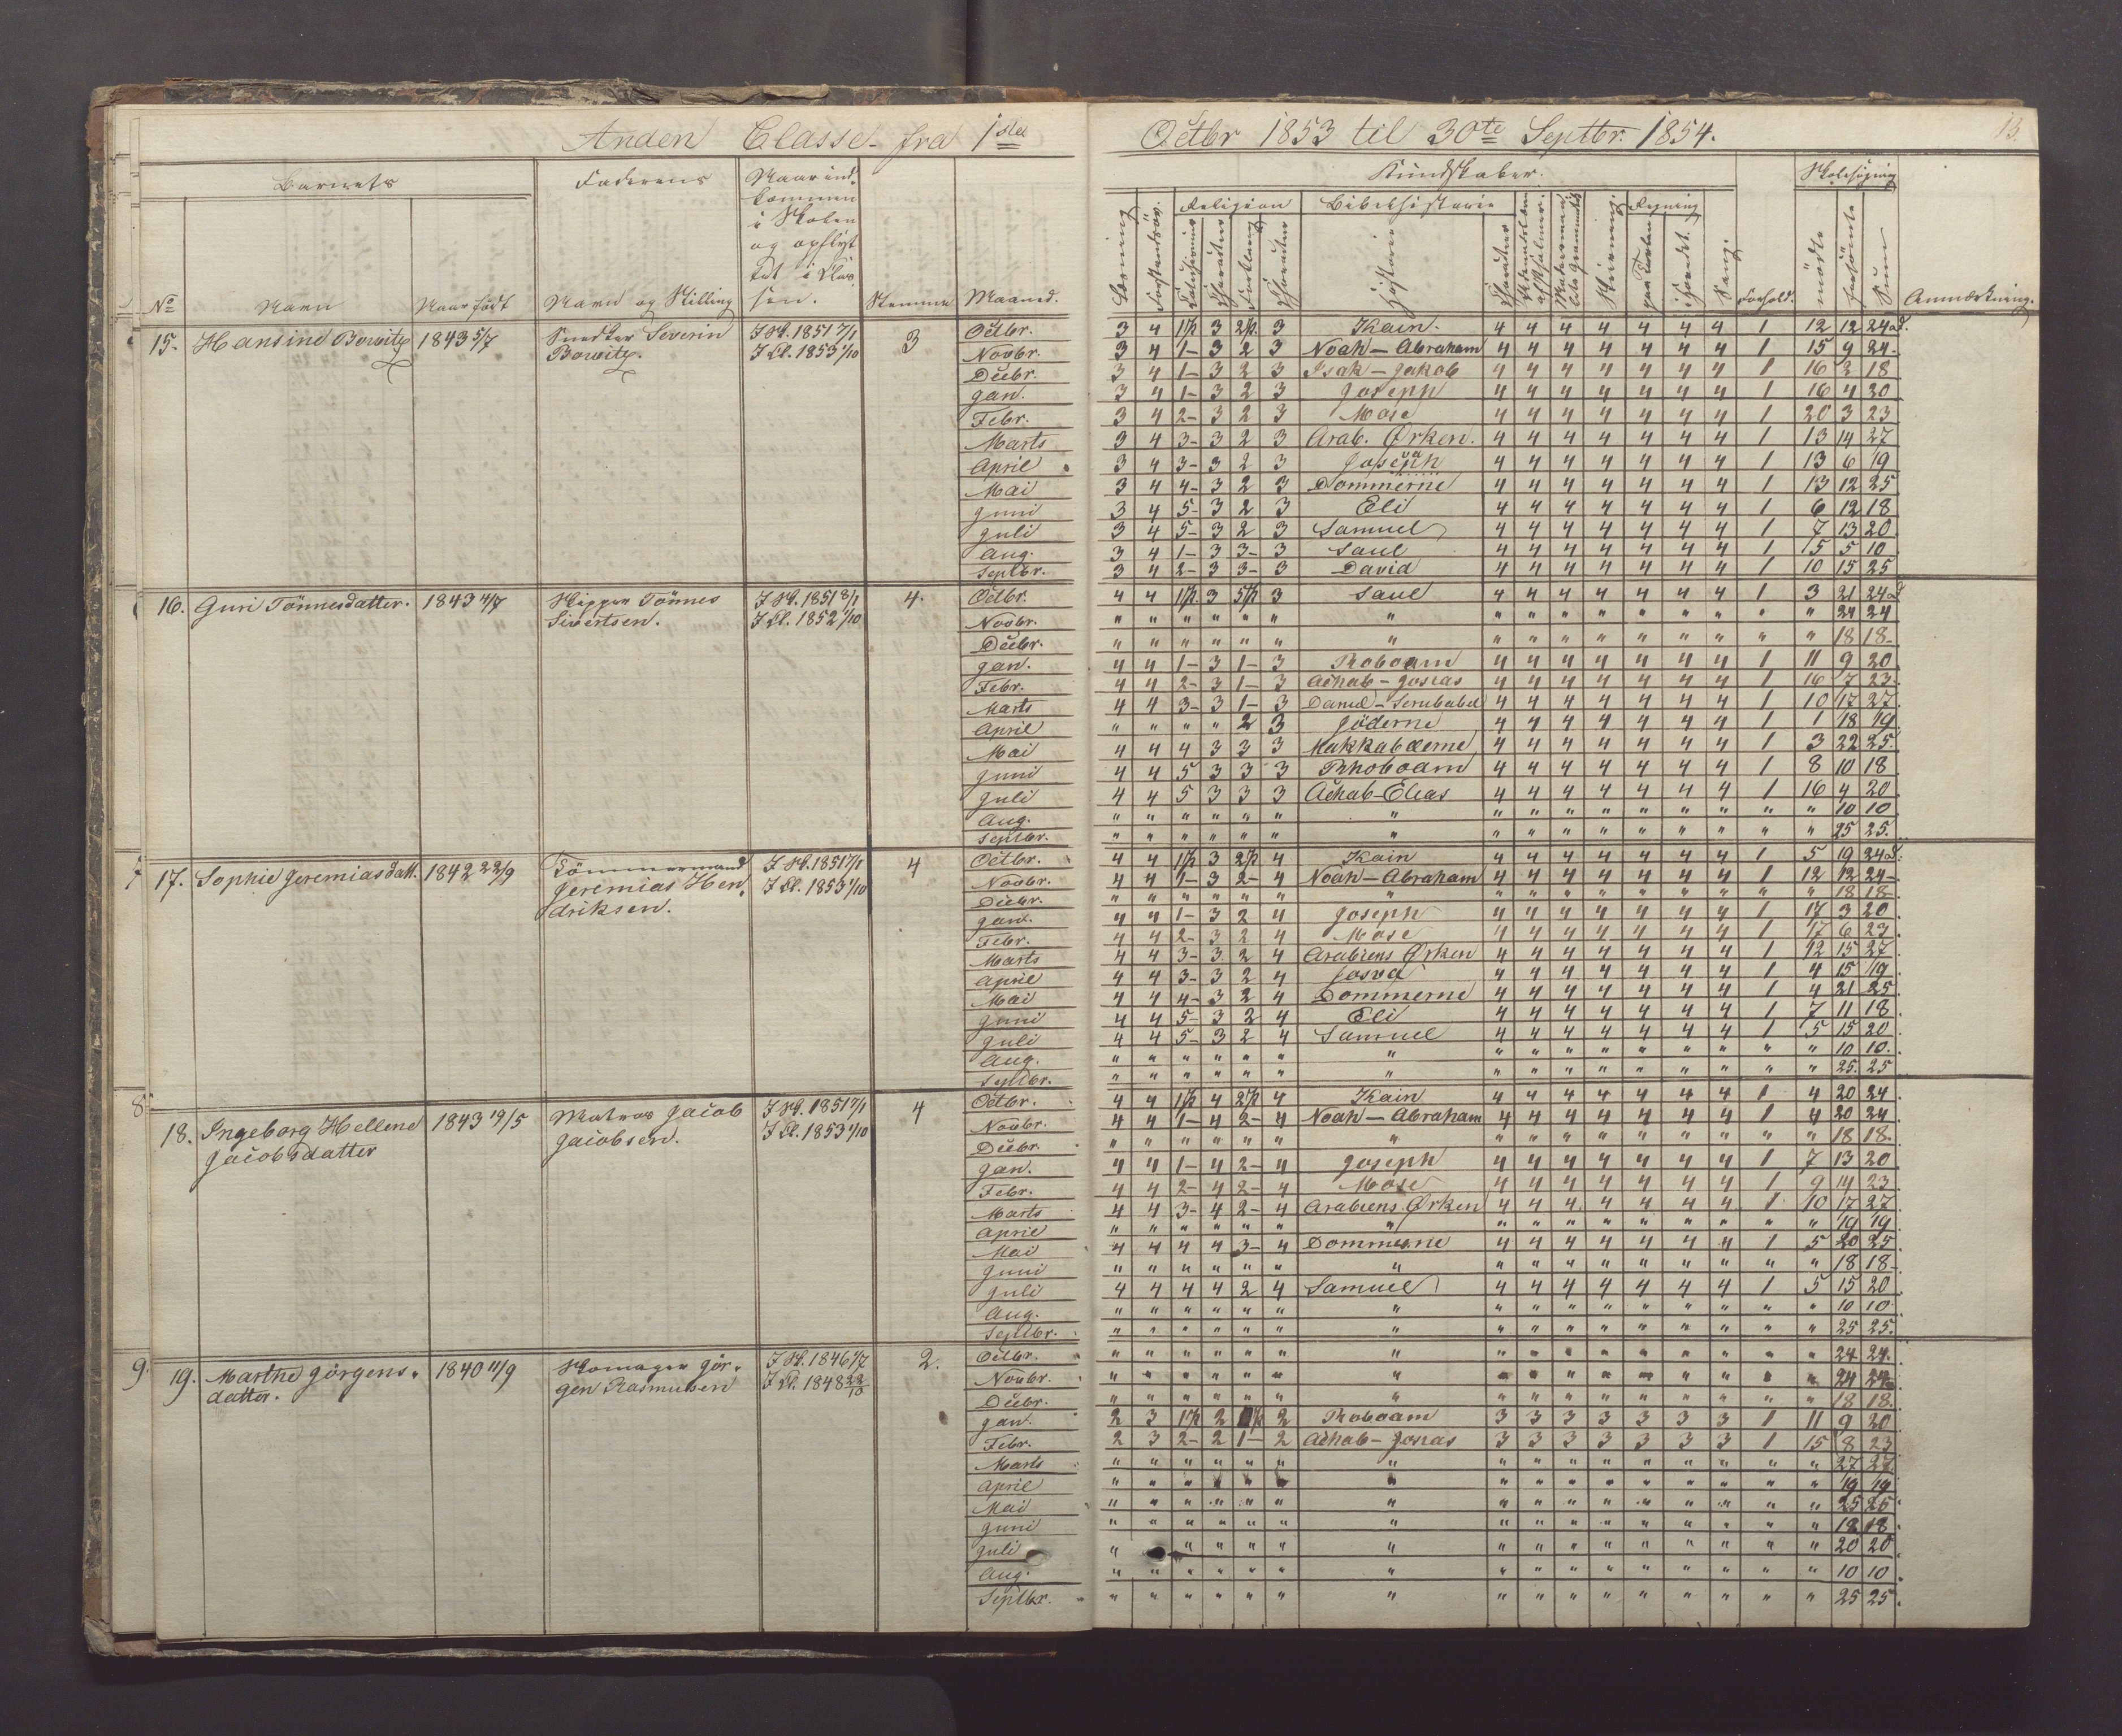 Anden Classe fra 1ste Octbr 1853 til 30te Septbr. 1854. 13.
Barnets Faderens Naar ind- Kundskaber. Skolesøgning
kommen
i Skolen Religion Bibelhistorie Regning
og opflyt
tet i Clas
No Navn Naar født Navn og Stilling sen. Stemme Maaned. Læsning Historie Skrivning Sang. Forhold. mødte forsømte Sum Anmærkning.
15. Hansine Bowitz 1843 5/7 Severin I Sk. 1851 7/1 3 Octbr. 3 4 1 1/2 3 2 1/2 3 Kain. 4 4 4 4 4 4 4 1 12 12 24 d.
Bowitz. I Cl. 1853 1/10 Novbr. 3 4 1- 3 2 3 Noah - Abraham 4 4 4 4 4 4 4 1 15 9 24-
Decbr. 3 4 1- 3 2 3 Isak - Jakob 4 4 4 4 4 4 4 1 16 2 18
Jan. 3 4 1- 3 2 3 Joseph 4 4 4 4 4 4 4 1 16 4 20
Febr. 3 4 2- 3 2 3 Mose 4 4 4 4 4 4 4 1 20 3 23
Marts 3 4 3- 3 2 3 Arab. Ørken. 4 4 4 4 4 4 4 1 13 14 27
April 3 4 3- 3 2 3 4 4 4 4 4 4 4 1 13 6 19
Mai 3 4 4- 3 2 3 Dommerne 4 4 4 4 4 4 4 1 13 12 25
Juni 3 4 5- 3 2 3 Eli 4 4 4 4 4 4 4 1 6 12 18
Juli 3 4 5- 3 2 3 Samuel 4 4 4 4 4 4 4 1 7 13 20
Aug. 3 4 1- 3 3- 3 Saul 4 4 4 4 4 4 4 1 15 5 10
Septbr. 3 4 2- 3 3- 3 David 4 4 4 4 4 4 4 1 10 15 25
16. Guri Tönnesdatter. 1843 4/7 Skipper Tönnes I Sk. 1851 8/1 4. Octbr. 4 4 1 1/2. 3 5 1/2 3 Saul 4 4 4 4 4 4 4 1 3 21 24 d
Sivertsen. I Cl. 1852 1/10 Novbr. " " " " " " " " " " " " " " " " 24 24
Decbr. " " " " " " " " " " " " " " " " 18 18-
Jan. 4 4 1- 3 1- 3 Roboam 4 4 4 4 4 4 4 1 11 9 20
Febr. 4 4 2- 3 1- 3 Achab - Josias 4 4 4 4 4 4 4 1 16 7 23.
Marts 4 4 3- 3 1- 3 Daniel - Serubabel 4 4 4 4 4 4 4 1 10 17 27
April " " " " 2 3 Jöderne 4 4 4 4 4 4 4 1 1 18 19
Mai 4 4 4 3 3 3 Makkabæerne 4 4 4 4 4 4 4 1 3 22 25.
Juni 4 4 5 3 3 3 Rhoboam 4 4 4 4 4 4 4 1 8 10 18
Juli 4 4 5 3 3 3 Achab - Elias 4 4 4 4 4 4 4 1 16 4 20
Aug. " " " " " " " " " " " " " " " " 10 10
Septbr. " " " " " " " " " " " " " " " " 25 25.
7 17. Sophie Jeremiasdatt. 1842 22/9 Tömmermand I Sk. 1851 7/1 4 Octbr. 4 4 1 1/2 3 2 1/2 4 Kain 4 4 4 4 4 4 4 1 5 19 24 d.
Jeremias Hen I Cl. 1853 1/10 Novbr. 4 4 1- 3 2- 4 Noah - Abraham 4 4 4 4 4 4 4 1 12 12 24-
driksen. Decbr. " " " " " " " " " " " " " " " " 18 18-
Jan. 4 4 1- 3 2 4 Joseph 4 4 4 4 4 4 4 1 17 3 20
Febr. 4 4 2- 3 2 4 Mose 4 4 4 4 4 4 4 1 17 6 23
Marts 4 4 3- 3 2 4 Arabiens Ørken 4 4 4 4 4 4 4 1 12 15 27
April 4 4 3- 3 2 4 Josva 4 4 4 4 4 4 4 1 4 15 19
Mai 4 4 4- 3 2 4 Dommerne 4 4 4 4 4 4 4 1 4 21 25
Juni 4 4 5- 3 2 4 Eli 4 4 4 4 4 4 4 1 7 11 18
Juli 4 4 5- 3 2 4 Samuel 4 4 4 4 4 4 4 1 5 15 20
Aug. " " " " " " " " " " " " " " " " 10 10.
Septbr. " " " " " " " " " " " " " " " " 25. 25
8 18. Ingeborg Hellene 1843 19/5 Matros Jacob I Sk. 1851 7/1 4 Octbr. 4 4 1 1/2 4 2 1/2 4 Kain 4 4 4 4 4 4 4 1 4 20 24
Jacobsdatter Jacobsen. I Cl. 1853 1/10 Novbr. 4 4 1- 4 2- 4 Noah - Abraham 4 4 4 4 4 4 4 1 4 20 24
Decbr. " " " " " " " " " " " " " " " " 18 18.
Jan. 4 4 1- 4 2- 4 Joseph 4 4 4 4 4 4 4 1 7 13 20
Febr. 4 4 2- 4 2- 4 Mose 4 4 4 4 4 4 4 1 9 14 23
Marts 4 4 3- 4 2- 4 Arabiens Ørken 4 4 4 4 4 4 4 1 10 17 27
April " " " " " " " " " " " " " " " " 19 19
Mai 4 4 4 4 3- 4 Dommerne 4 4 4 4 4 4 4 1 5 20 25
Juni " " " " " " " " " " " " " " " " 18 18-
Juli 4 4 4 4 2 4 Samuel 4 4 4 4 4 4 4 1 5 15 20
Aug. " " " " " " " " " " " " " " " " 10 10
Septbr. " " " " " " " " " " " " " " " " 25 25.
9. 19. Marthe Jörgens- 1840 11/9 Skomager Jör- I Sk. 1846 1/7 2. Octbr. " " " " " " " " " " " " " " " " 24 24.
datter. gen Rasmussen I Cl. 1848 22/10 Novbr. " " " " " " " " " " " " " " " " 24 24
Decbr. " " " " " " " " " " " " " " " " 18 18.
Jan. 2 3 1 1/2 2 2 Roboam 3 3 3 3 3 3 3 1 11 9 20
Febr. 2 3 2- 2 1- 2 Achab - Josias 3 3 3 3 3 3 3 1 15 8 23
Marts " " " " " " " " " " " " " " " " 27 27
April " " " " " " " " " " " " " " " " 19 19
Mai " " " " " " " " " " " " " " " " 25 25
Juni " " " " " " " " " " " " " " " " 18 18
Juli " " " " " " " " " " " " " " " 20 20
Aug. " " " " " " " " " " " " " " " " 10 10
Septbr. " " " " " " " " " " " " " " " " 25 25